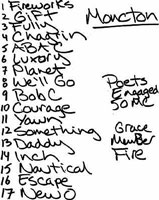 1 Fireworks
2 Gift
3 Fully
4 Chattin
5 ABAC
6 Luxury
7 Planet
8 We'll Go
9 Bob C
10 Courage
11 Yawn
12 Something
13 Daddy
14 Inch
15 Nautical
16 Escape
17 New O
Moncton
Poets
Engaged
50 MC
Grace
Member
Fire